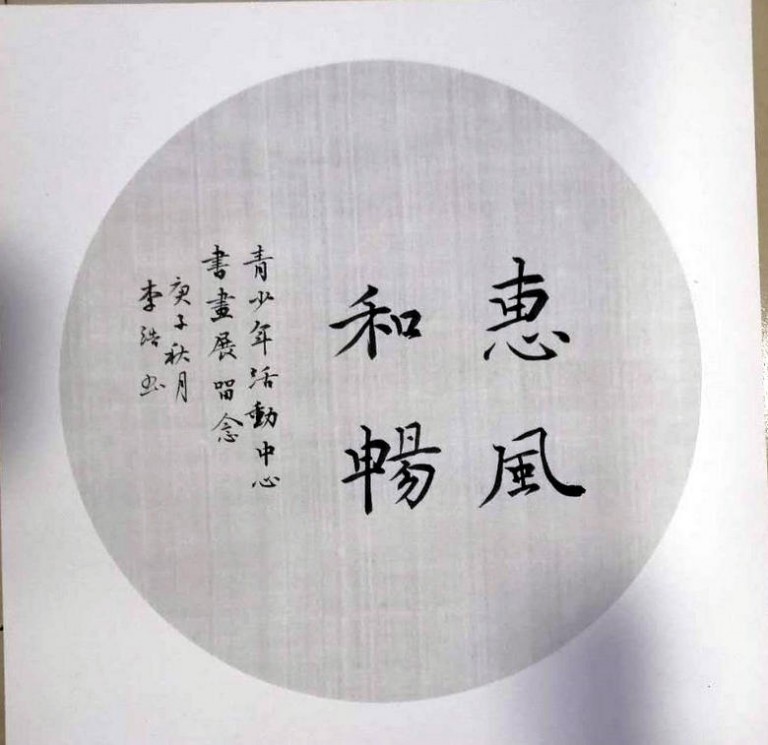 惠風
和暢
青少年活動中心
書畫展留念
庚子秋月
李浩书